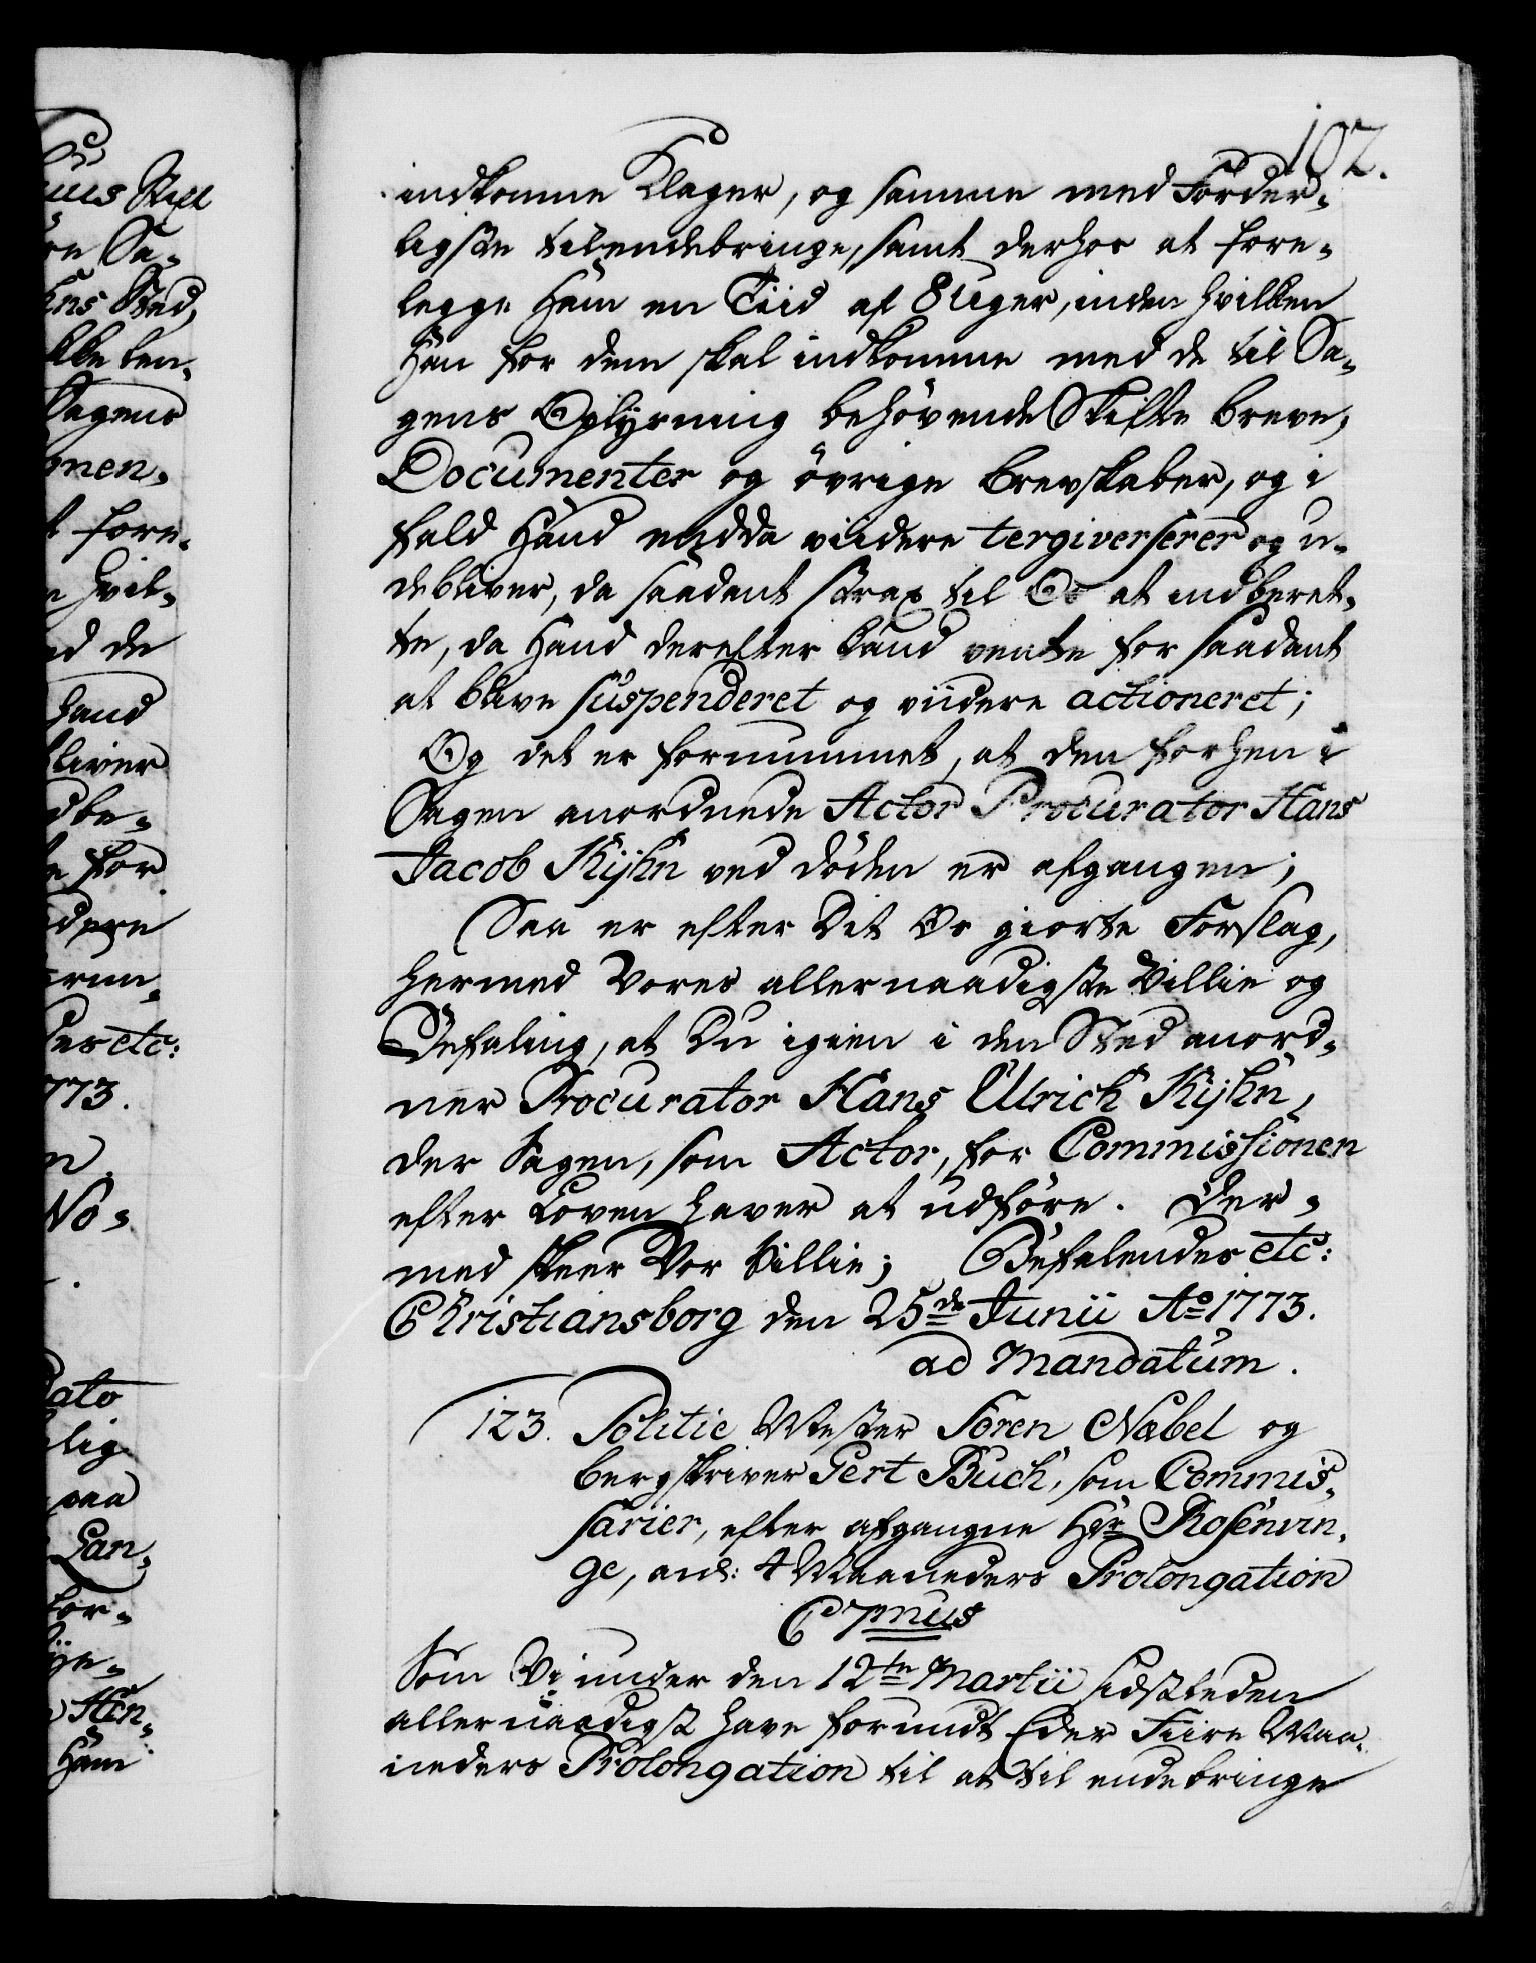 102.
indkomne Klager, og samme med Forder-
ligste tilendebringe, samt derhos at fore-
legge Ham en Tiid af 8 Uger, inden hvilken
Han for dem skal indkomme med de til Sa-
gens Oplysning behövende Skifte breve,
Documenter og övrige brevskaber, og i
fald Hand endda viidere tergiverserer og u-
debliver, da saadant strax til Os at indberet-
te, da Hand derefter kand vente for saadant
at blive suspenderet og viidere actioneret;
Og det er fornummet, at den forhen i
Sagen anordnede Actor Procurator Hans
Jacob Kÿhn ved döden er afgangen;
Saa er efter Dit Os giorte Forslag,
hermed Vores allernaadigste Villie og
Befaling, at Du igien i den Sted anord-
ner Procurator Hans Ulrich Kÿhn,
der Sagen, som Actor, for Commissionen
efter Loven haver at udföre. Der-
med skeer Vor Villie; Befalendes etc:
Christiansborg den 25de Junii Ao 1773.
ad Mandatum.
123. Politie Mester Sören Nabel og
bergskriver Gert Buch, som Commis-
sarier, efter afgangne Hr Rosenvin-
ge, anl: 4 Maaneders Prolongation
C 7mus
Som Vi under den 12te Martii sidstleden
allernaadigst have forundt Eder Fiire Maa-
neders Prolongation til at til endebringe
uus Skill
re Sa-
ens Sted,
kke ten-
Sagens
men-
t fore-
n hvil-
d de
hand
liver
dbe-
e for
dere
erun-
des etc:
773.
n
No-
ato
elig
paa
Lan-
for-
ÿe-
Hen-
Ham